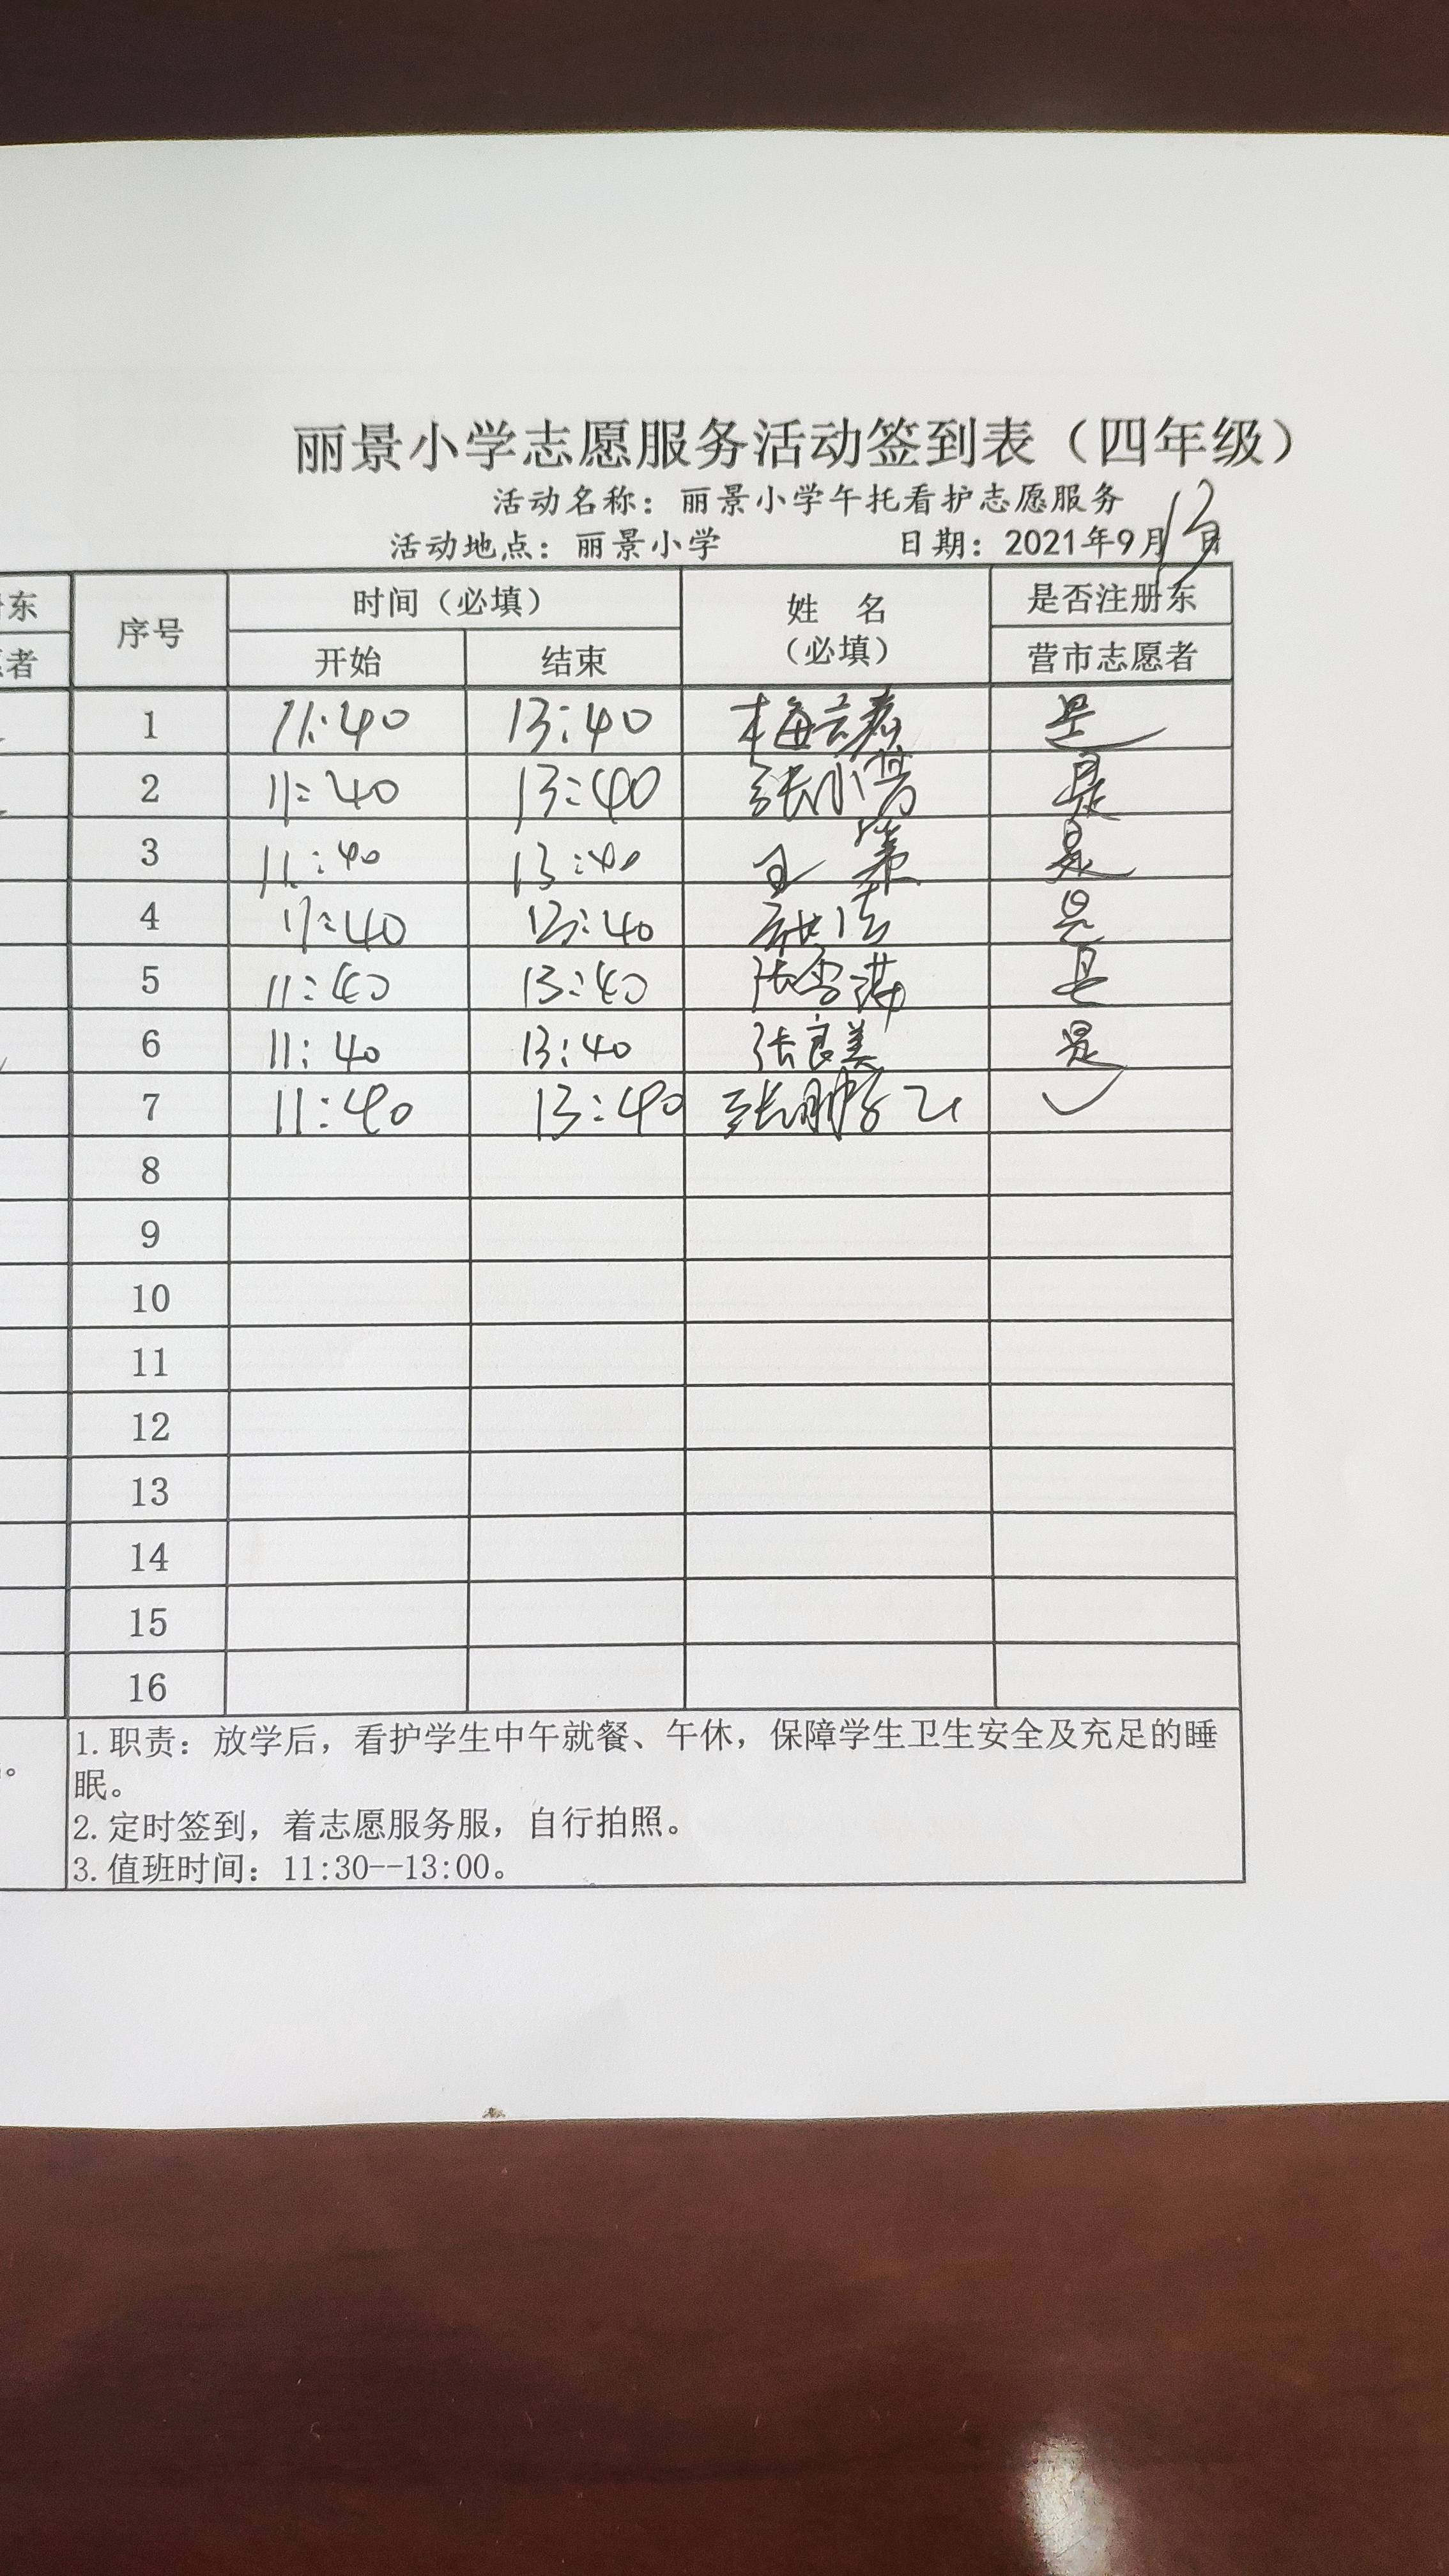 丽景小学志愿服务活动签到表（四年级）
活动名称：丽景小学午托看护志愿服务
活动地点：丽景小学 日期：2021年9月13日
东 序号 时间（必填） 姓 名 是否注册东
者 开始 结束 （必填） 营市志愿者
1 11:40 13:40 是
2 11:40 13:40 张小芳 是
3 11:40 13:40 王 是
4 11:40 13:40 是
5 11:40 13:40 张 是
6 11:40 13:40 张良美 是
7 11:40 13:40 张 ✓
8
9
10
11
12
13
14
15
16
1.职责：放学后，看护学生中午就餐、午休，保障学生卫生安全及充足的睡
眠。
2.定时签到，着志愿服务服，自行拍照。
3.值班时间：11:30--13:00。